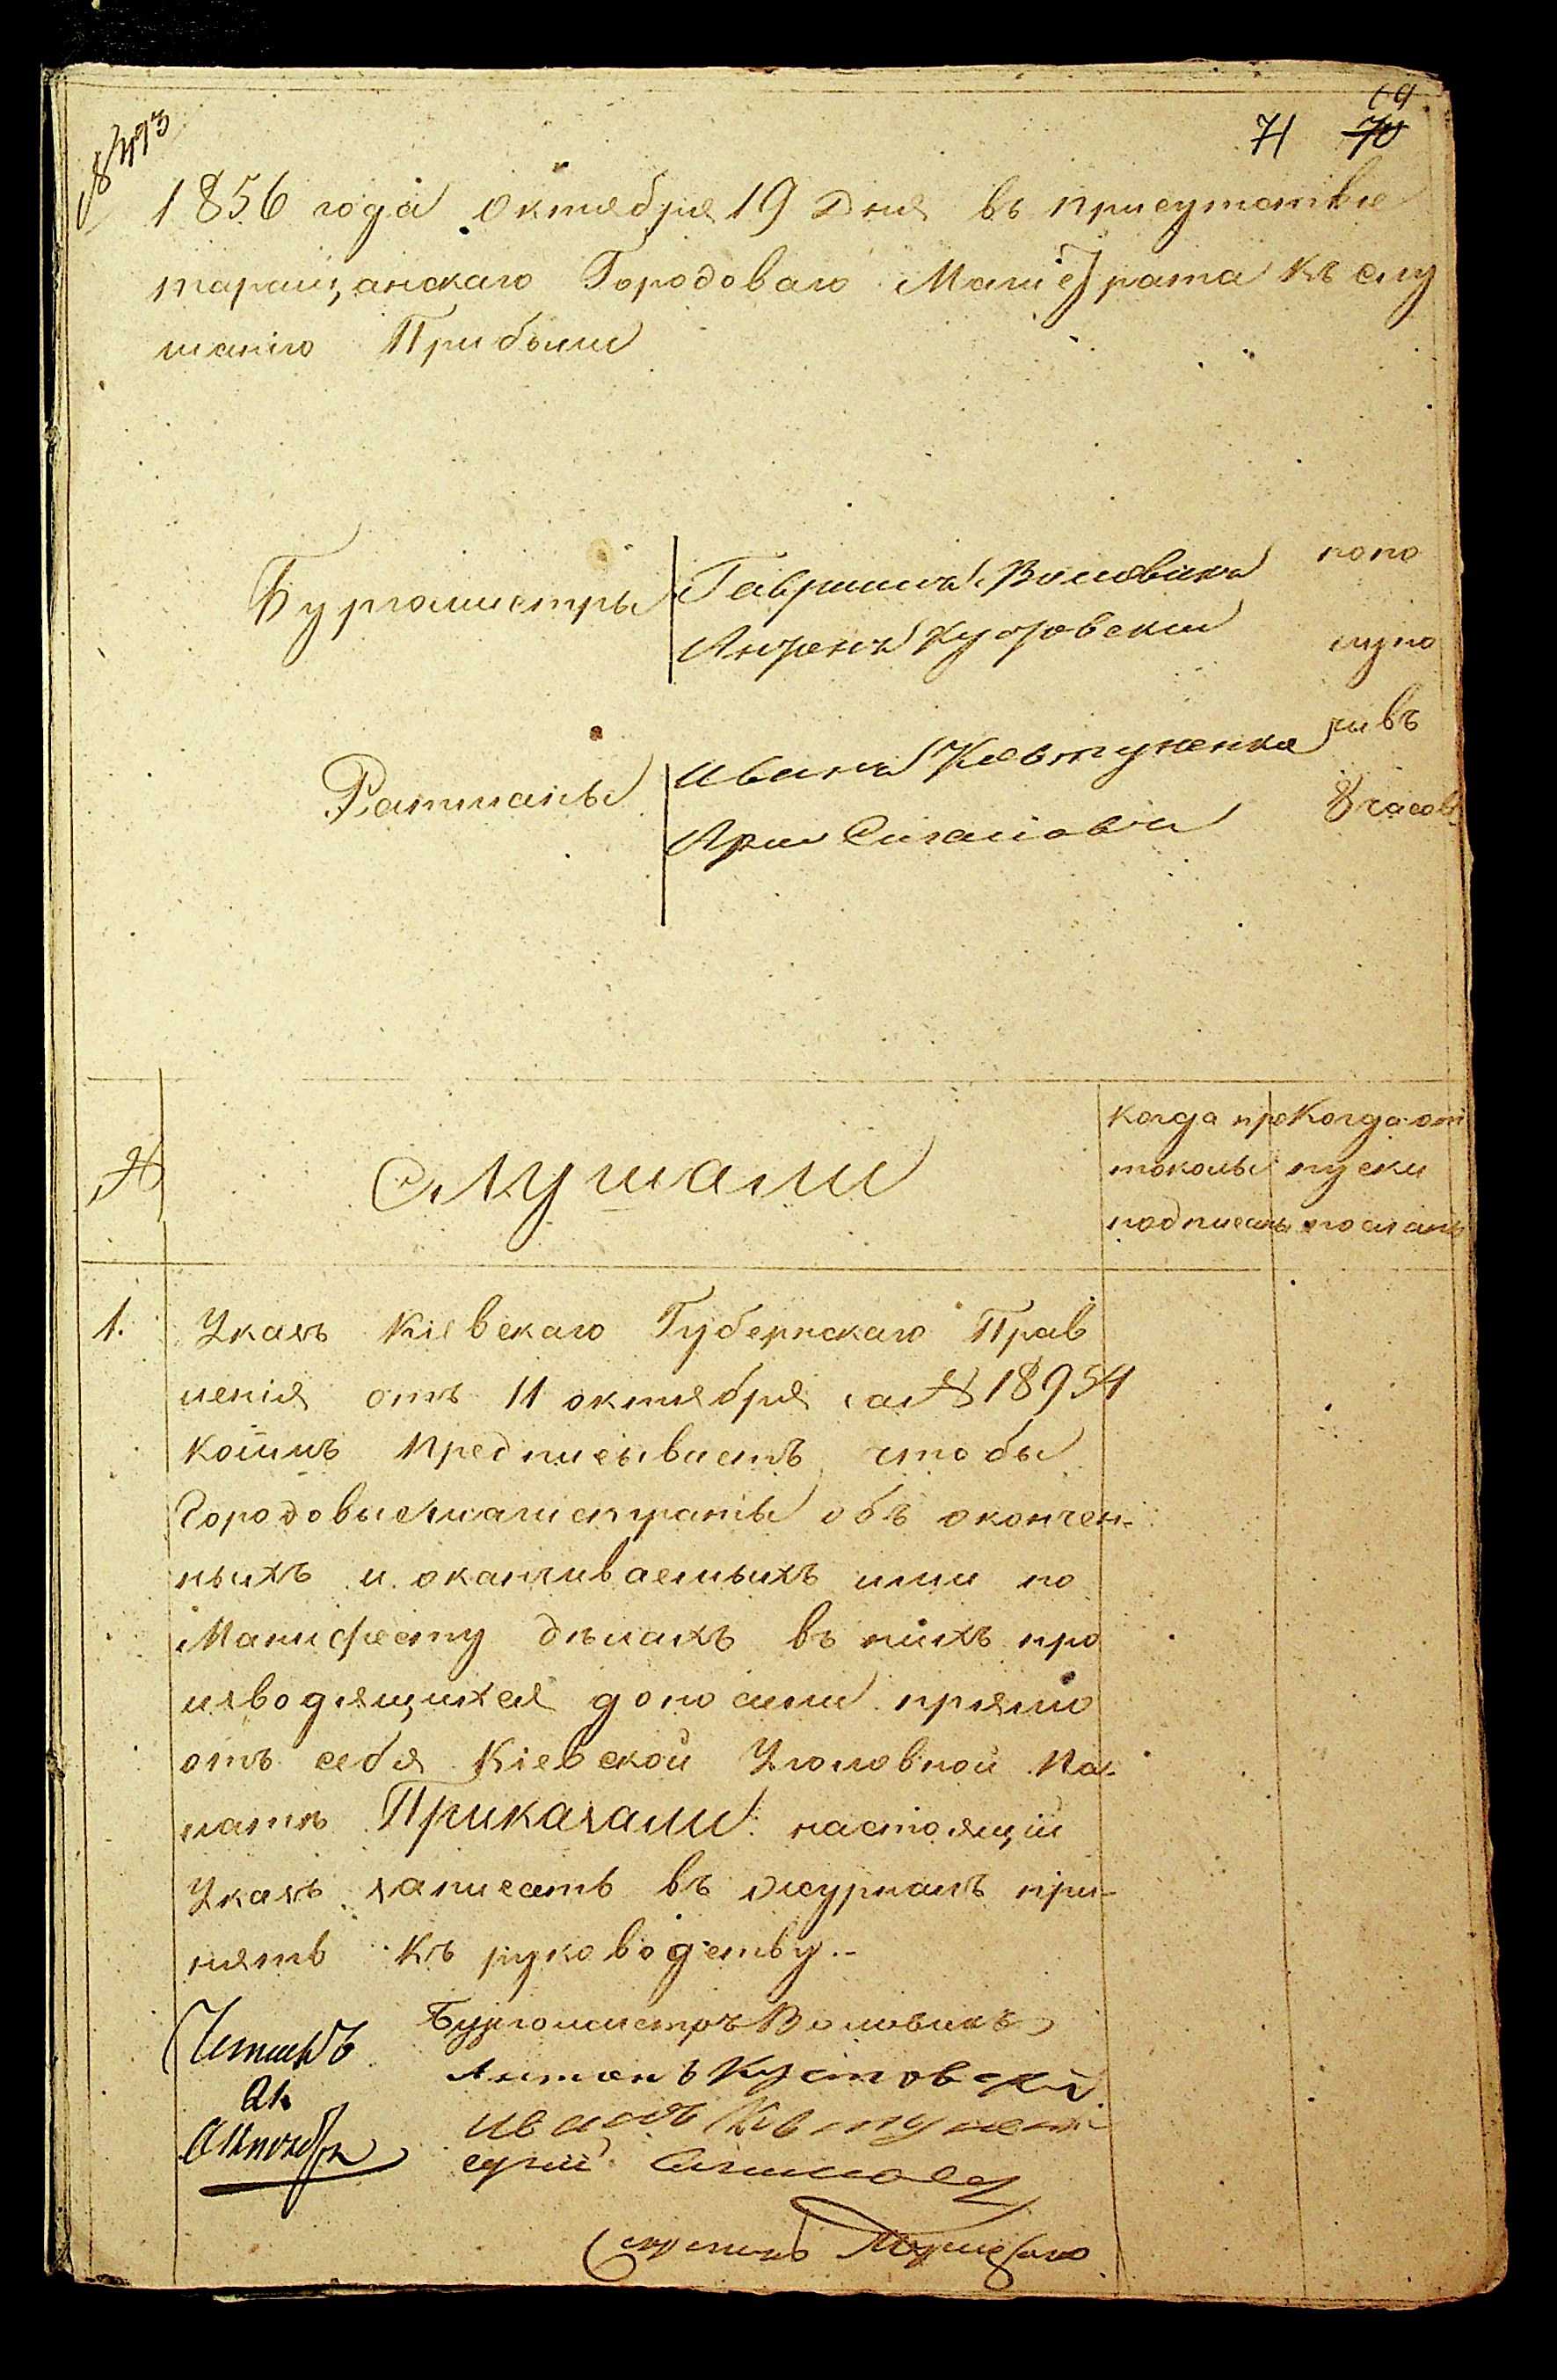 № 493
71 69 70
1856 года Октября 19 Дня въ присутствіе
таращанскаго Городоваго Магистрата къ слу
шанію Прибыли
Бургомистры
Гаврилъ Воловикъ
попо
Антонъ Кустовскій
луно
чи въ
Ратманы
Иванъ Ковтуненко
8 часовъ
№
Слушали
Когда про
токолы
подписаны
Когда от
пуски
посланы
1.
Указъ Кіевскаго Губернскаго Прав
ленія отъ 11 октября за № 18954
коимъ Предписываетъ чтобы
Городовые магистраты объ окончен-
ныхъ и оканчиваемыхъ ими по
Манифесту дѣлахъ въ нихъ про
изводящихся доносили прямо
отъ себя Кіевской Уголовной Па-
латѣ Приказали настоящій
Указъ записать въ журналъ при-
нять къ руководству.-
Бургомистръ Воловикъ
Антонъ Кустовскій
Иванъ Ковтуненко
Октября
Скрепилъ